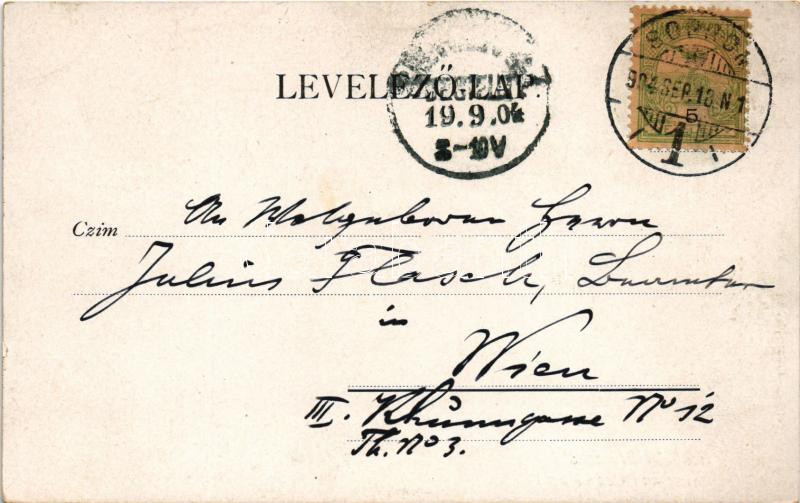 LEVELEZŐ-LAP.
19.9.04
8-10V
SOPRON
904 SEP. 18. N. 1
5
1
Czím An Wolgeboren Herrn
Julius Flasch, Beamter
in
Wien
III. Khunngasse No 12
Th. No 3.